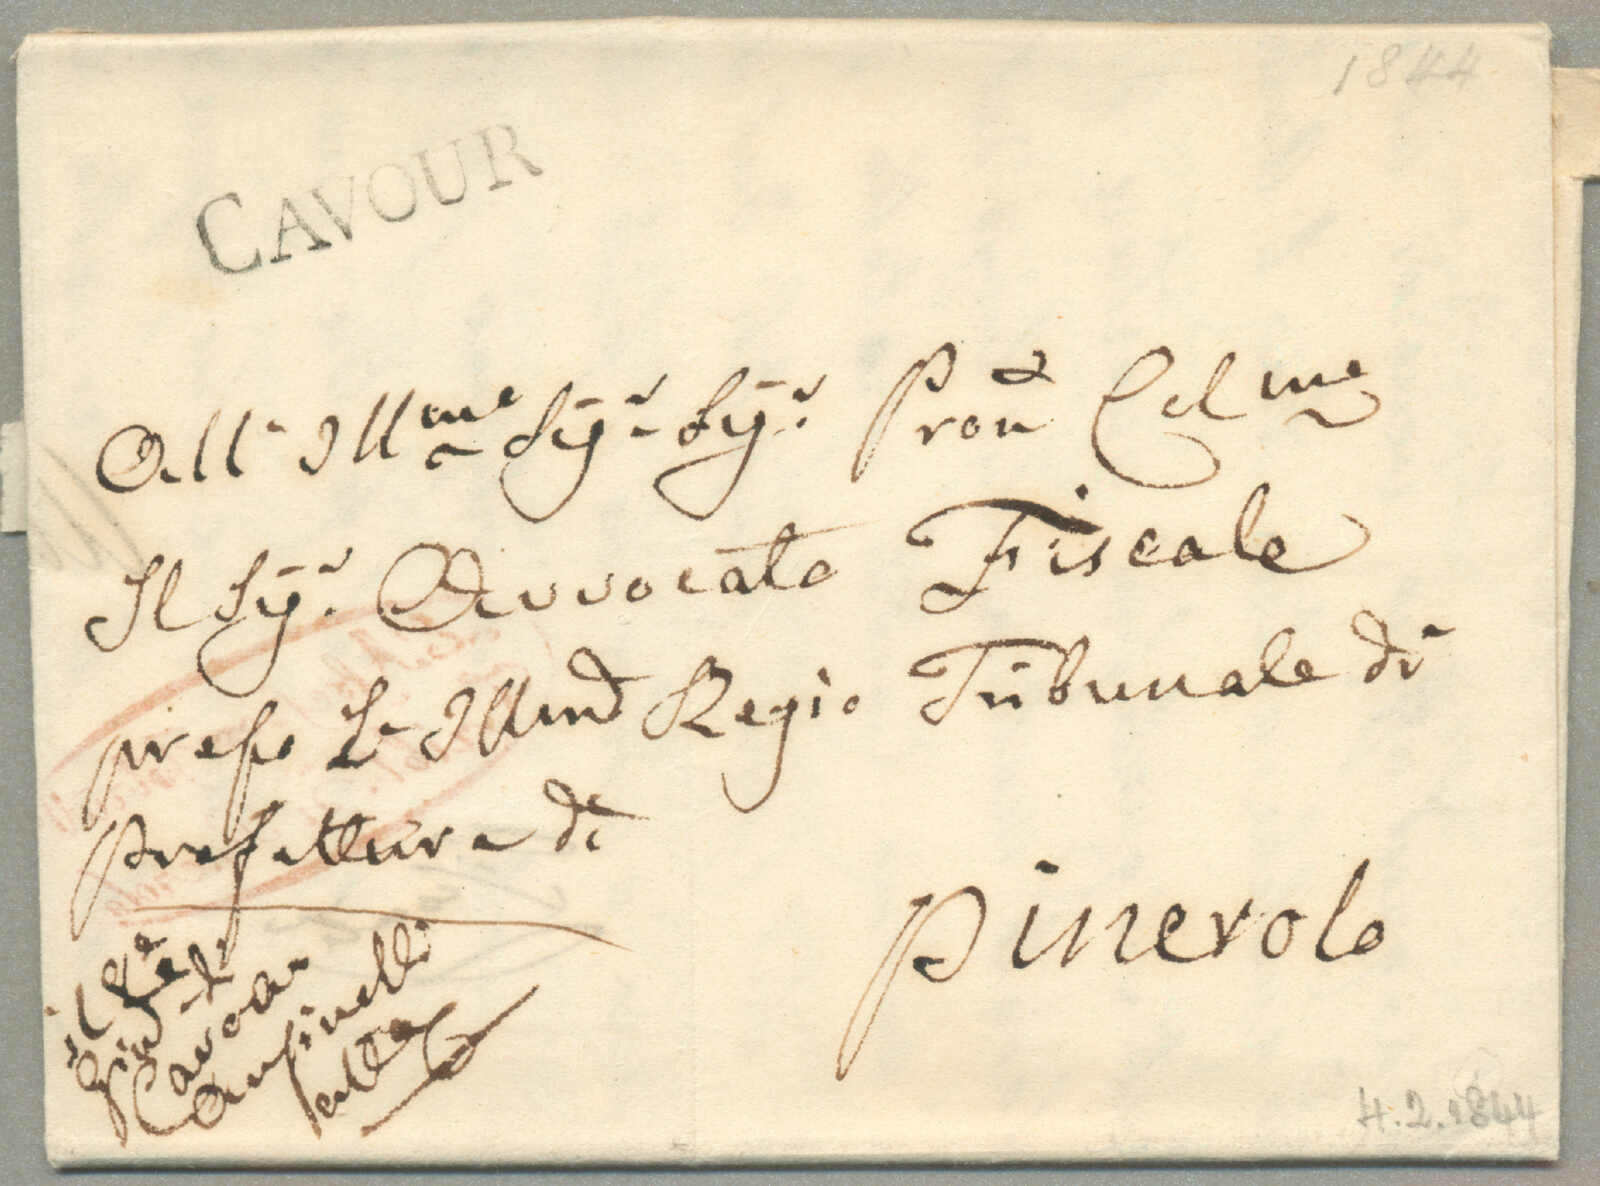 1844
CAVOUR
All' Illme Sigr Sigr Pron Colme
Il Sigr Avvocato Fiscale
presso L' Illmo Regio Tribunale di
Prefettura di
Pinerolo
il
Giud di
Cavour
4.2.1844